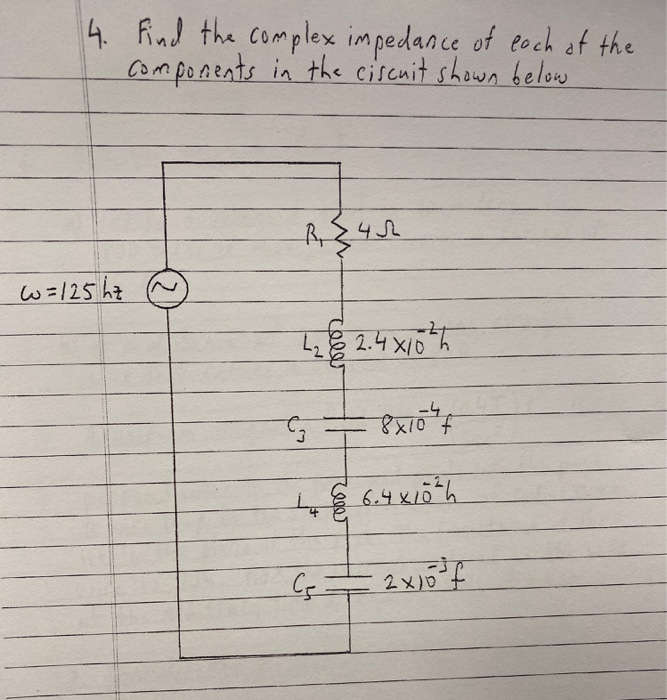 4. Find the complex impedance of each of the
components in the circuit shown below
R₁ 4Ω
ω=125 hz
L₂ 2.4 x10⁻²h
C₃ 8x10⁻⁴ f
L₄ 6.4 x10⁻²h
C₅ 2x10⁻³ f